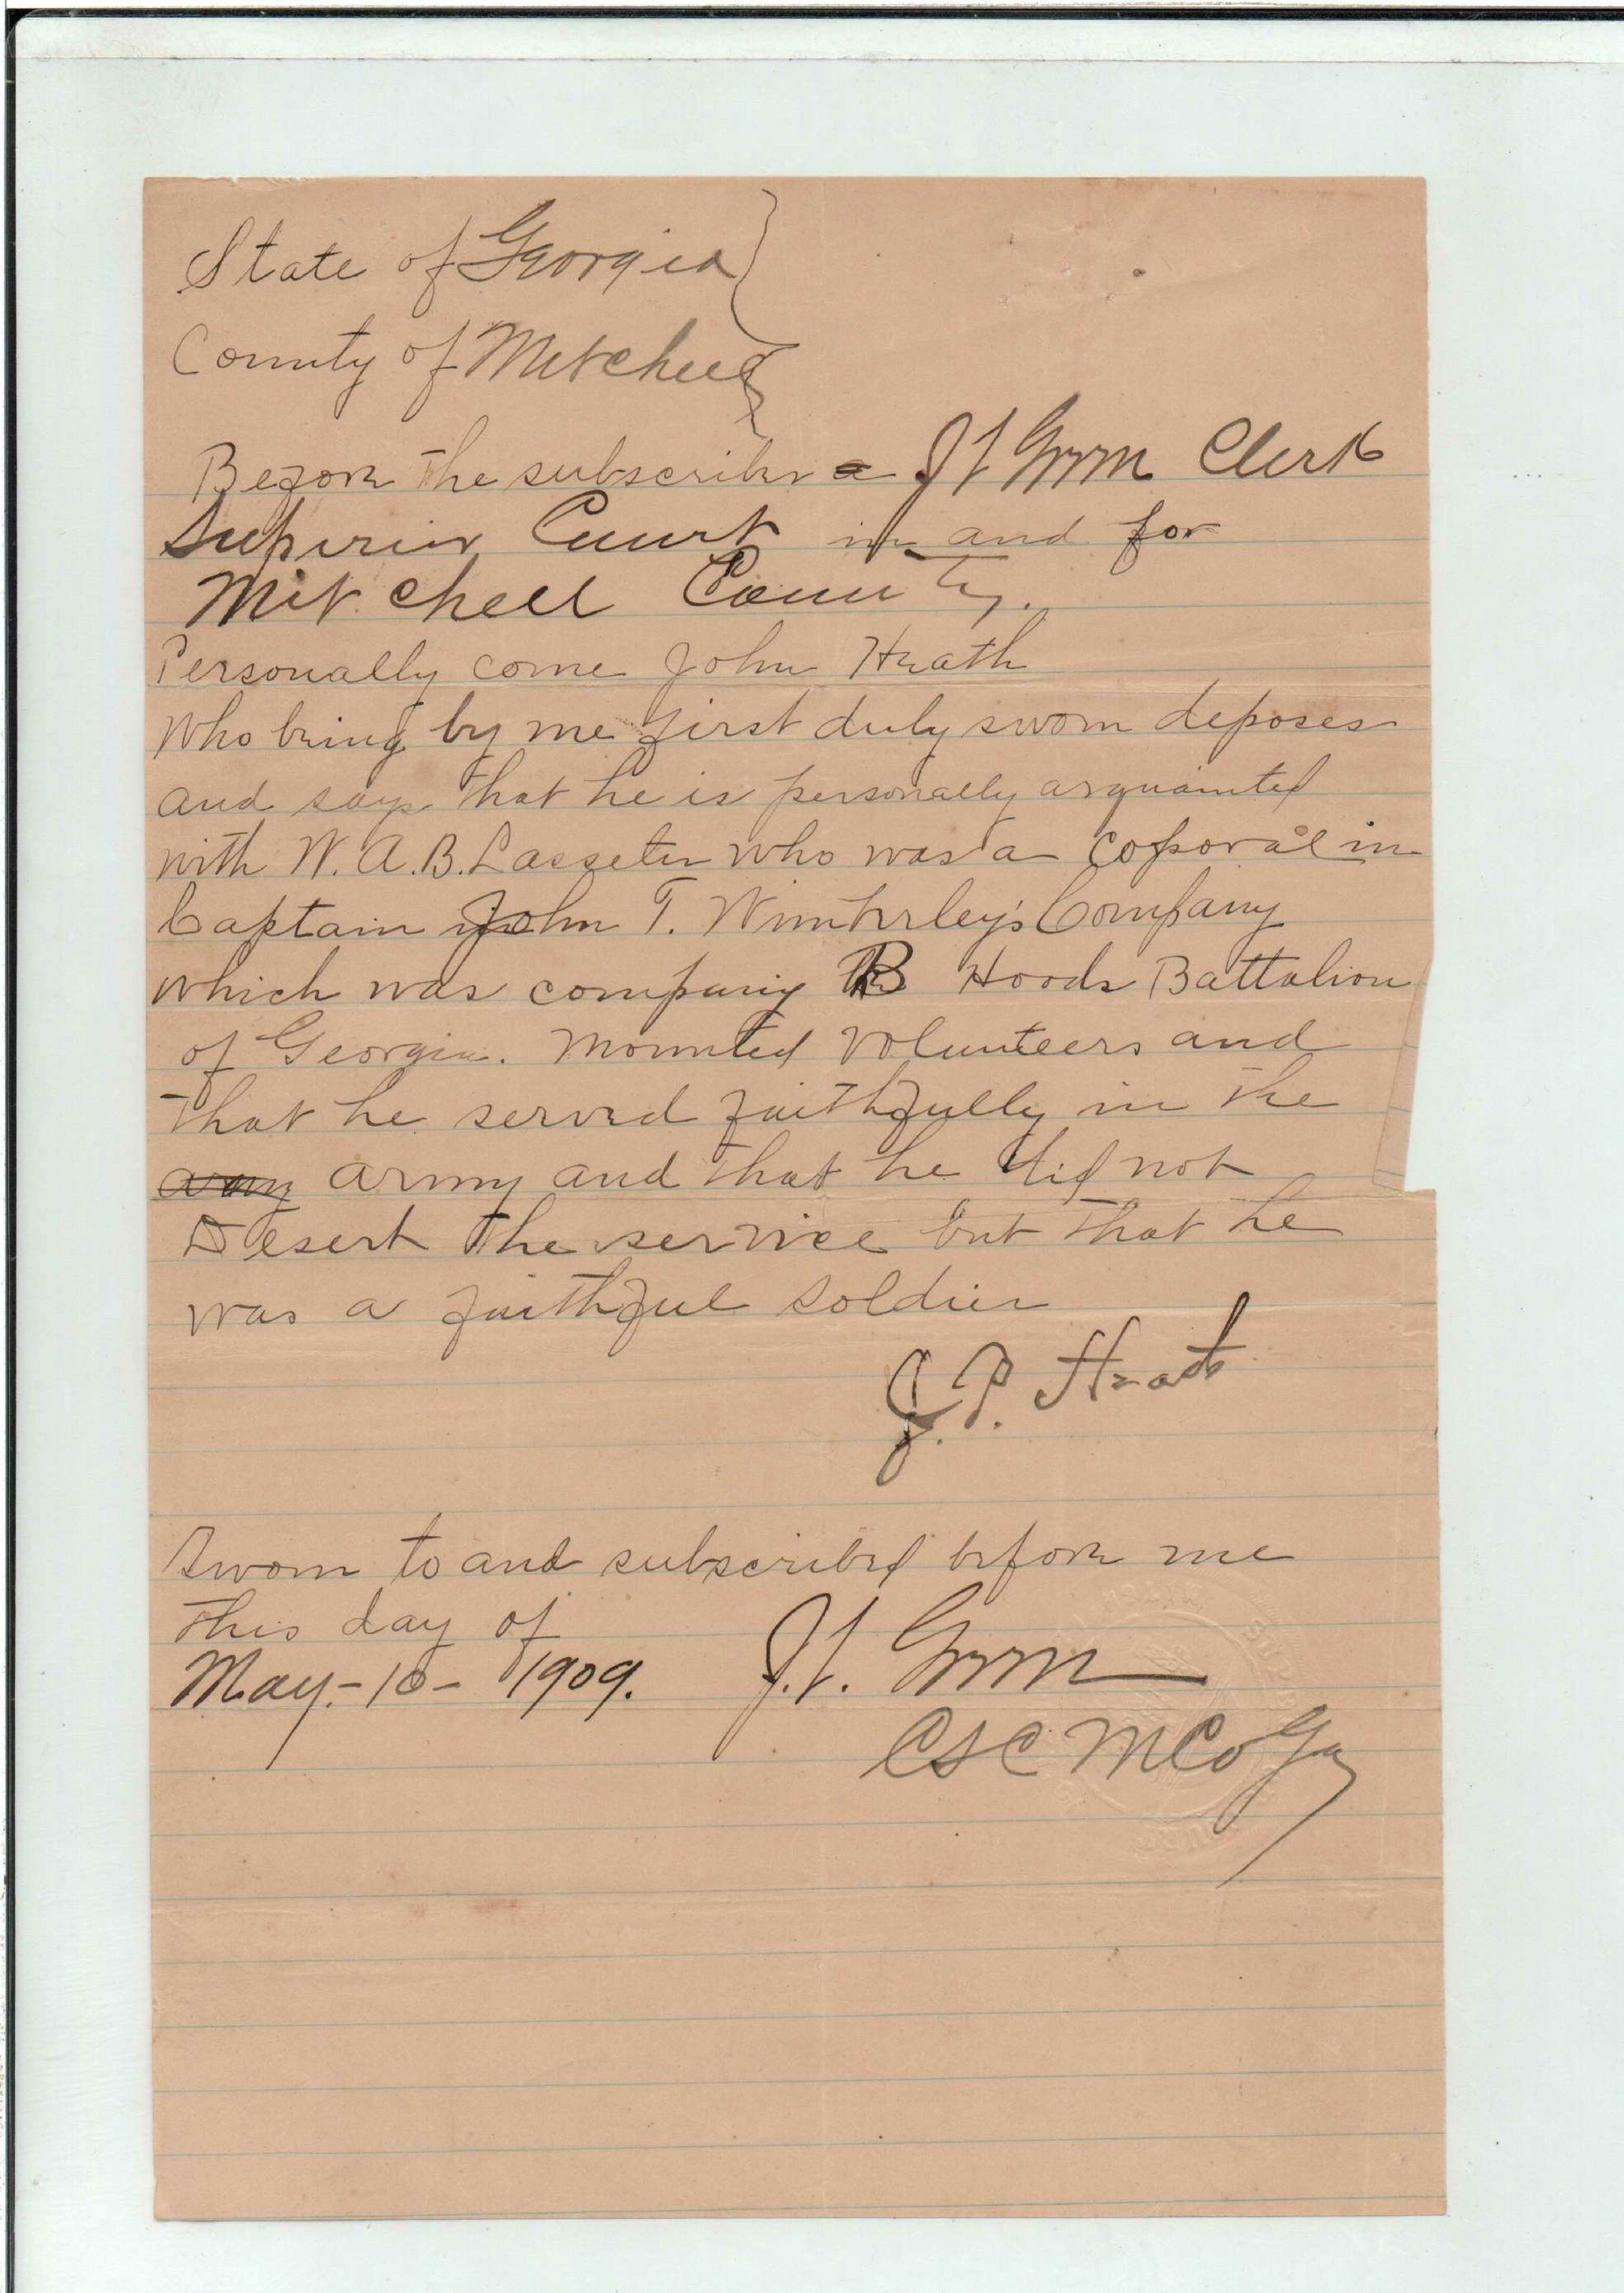 State of Georgia
County of Mitchell
Before the subscriber a J. Clerk
Superior Court in and for
Mitchell County.
Personally come John Heath
Who being by me first duly sworn deposes
and says that he is personally acquainted
with W. A. B. Lasseter who was a coporal in
Captain John T. Wimberley's Company
which was company B Hoods Battalion
of Georgia. Mounted Volunteers and
that he served faithfully in the
army army and that he did not
Desert the service but that he
was a faithful soldier
J. P. Heath
Sworn to and subscribed before me
this day of
May - 10 - 1909. J.
CSC M Co Ga